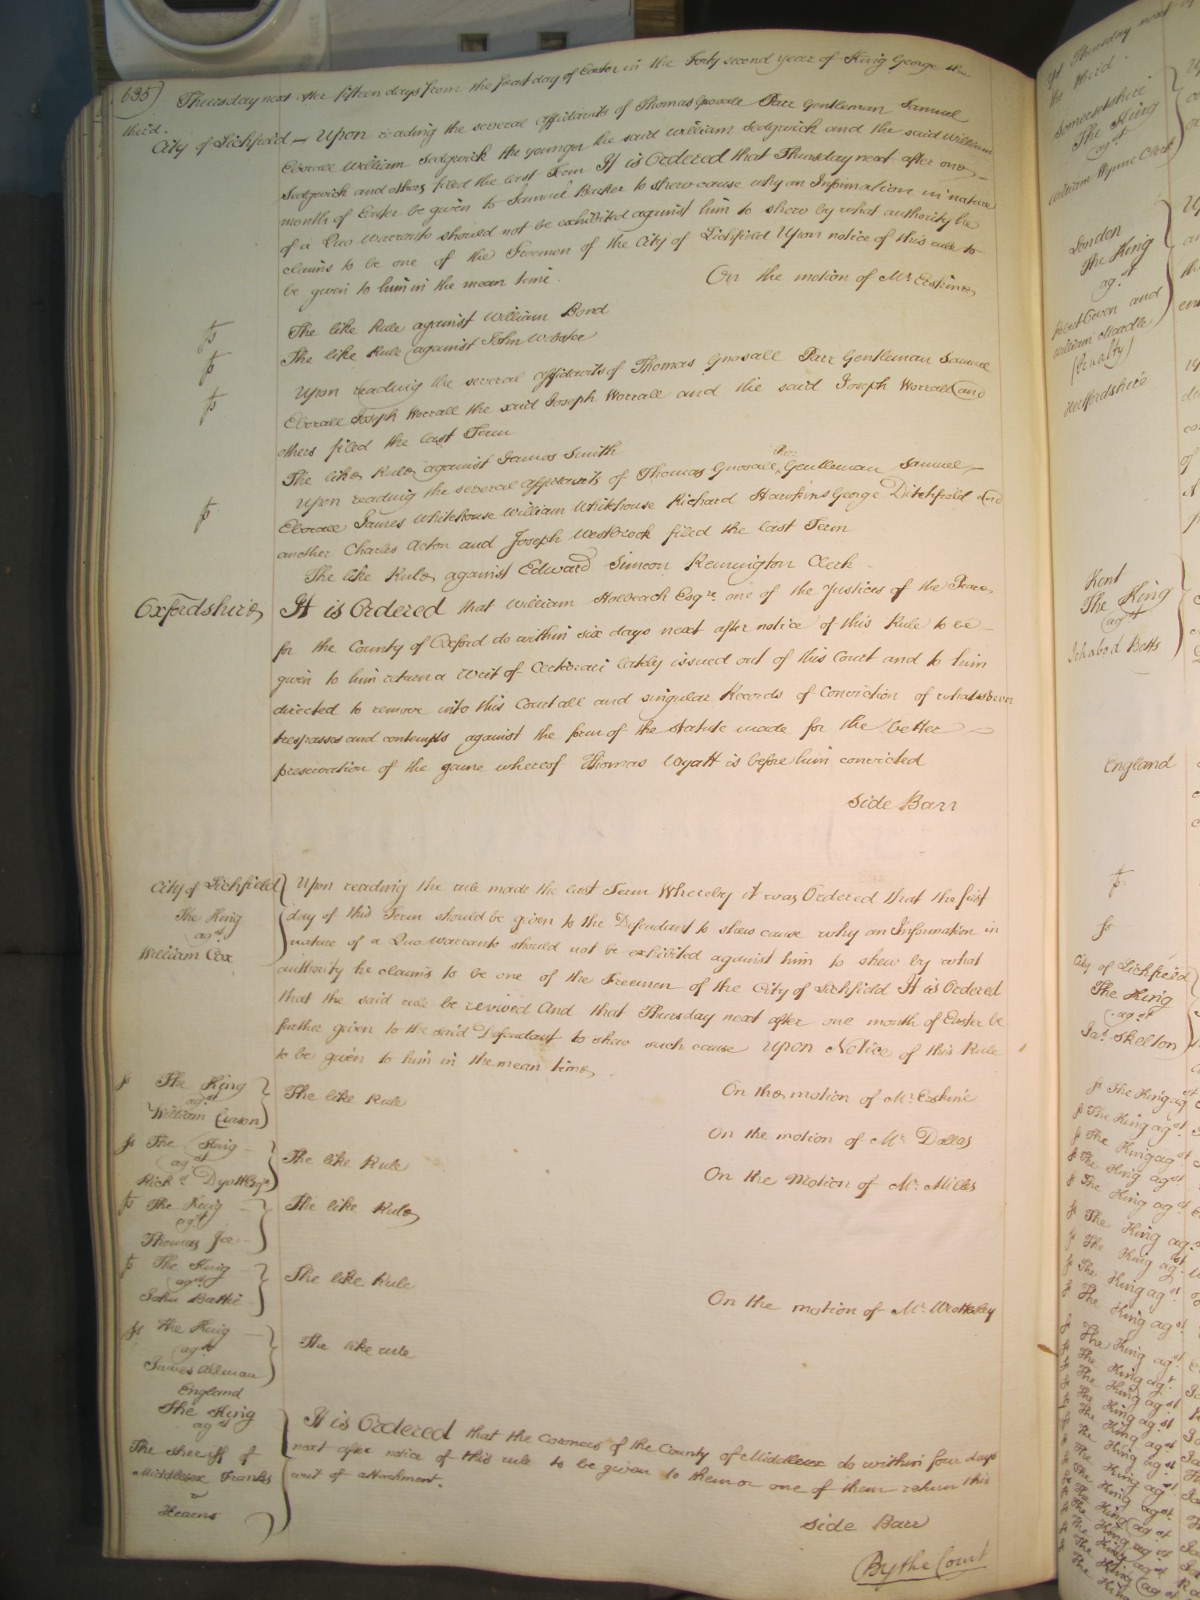 635) Thursday next after fifteen days from the feast day of Easter in the Forty second year of King George the
third.
City of Lichfield — Upon reading the several affidavits of Thomas Gnosall Parr Gentleman Samuel
Eborall William Sedgwick the younger the said William Sedgwick and the said William
Sedgwick and others filed the last Term It is Ordered that Thursday next after one
month of Easter be given to Samuel Barker to shew cause why an Information in nature
of a Quo Warranto should not be exhibited against him to shew by what authority he
claims to be one of the Freemen of the City of Lichfield Upon notice of this rule to
be given to him in the mean time.
On the motion of Mr. Erskine
The like Rule against William Bond
The like Rule against John Webster
Upon reading the several affidavits of Thomas Gnosall Parr Gentleman Samuel
Eborall Joseph Worrall the said Joseph Worrall and the said Joseph Worrall and
others filed the last Term
The like Rule against James Smith
Upon reading the several affidavits of Thomas Gnosall Parr Gentleman Samuel
Eborall James Whitehouse William Whitehouse Richard Hawkins George Ditchfield and
another Charles Acton and Joseph Westbrook filed the last Term
The like Rule against Edward Simeon Remington Clerk
Oxfordshire It is Ordered that William Holbeach Esqre. one of the Justices of the Peace
for the County of Oxford do within six days next after notice of this Rule to be
given to him return a Writ of Certiorari lately issued out of this Court and to him
directed to remove into this Court all and singular Records of Conviction of whatsoever
trespasses and contempts against the form of the statute made for the better
preservation of the game whereof Thomas Wyatt is before him convicted
Side Barr
City of Lichfield
The King
agst.
William Cox
Upon reading the rule made the last Term Whereby it was Ordered that the first
day of this Term should be given to the Defendant to shew cause why an Information in
nature of a Quo Warranto should not be exhibited against him to shew by what
authority he claims to be one of the Freemen of the City of Lichfield It is Ordered
that the said rule be revived And that Thursday next after one month of Easter be
further given to the said Defendant to shew such cause upon Notice of this Rule
to be given to him in the mean time.
On the motion of Mr. Erskine
The King
agst.
William Curson
The like Rule
On the motion of Mr. Dallas
The King
agst.
Richd. Dyott Esqr.
The like Rule
On the Motion of Mr. Milles
The King
agst.
Thomas
The like Rule
The King
agst.
John
The like Rule
On the motion of Mr. Wottesley
The King
agst.
James
The like rule
England
The King
agst.
The Sheriff of
Middlesex Franks
v
Hearns
It is Ordered that the Coroners of the County of Middlesex do within four days
next after notice of this rule to be given to them or one of them return this
writ of attachment.
Side Barr
By the Court
Yet Thursday next
the third.
Somersetshire
The King
agst.
William Wynne Clerk
London
The King
agst.
Robert Owen and
William
(Penalty)
Hertfordshire
Kent
The King
agst.
Ichabod Betts
England
City of Lichfield
The King
agst.
Jas. Skelton
The King agst.
The King agst.
The King agst.
The King agst.
The King agst.
The King agst.
The King agst.
The King agst.
The King agst.
The King agst.
The King agst.
The King agst.
The King agst.
The King agst.
The King agst.
The King agst.
The King agst.
The King agst.
The King